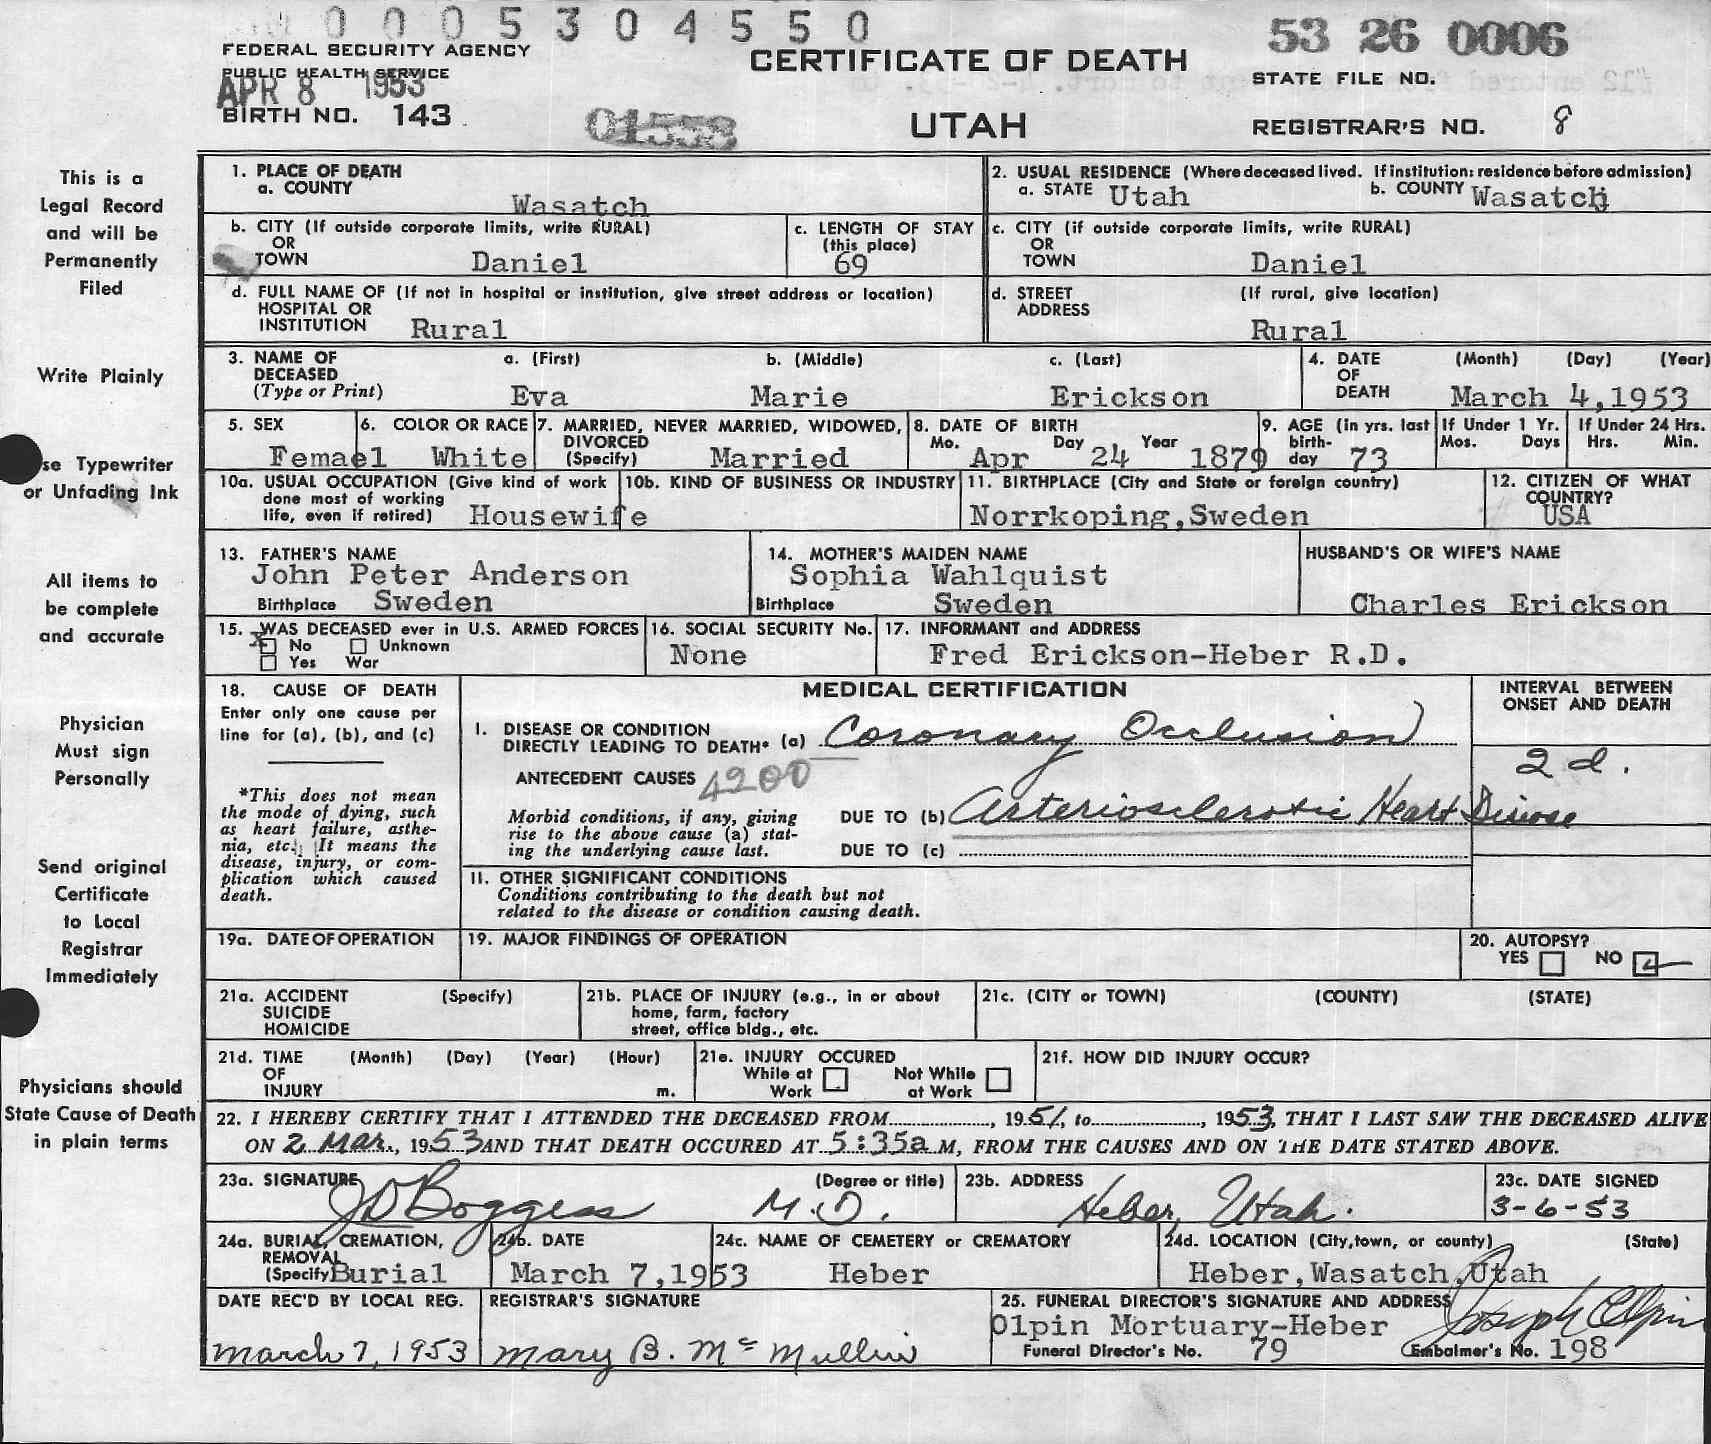 0 0 0 5 3 0 4 5 5 0
53 26 0006
FEDERAL SECURITY AGENCY
PUBLIC HEALTH SERVICE
APR 8 1953
BIRTH NO. 143
01558
CERTIFICATE OF DEATH
UTAH
STATE FILE NO.
REGISTRAR'S NO. 8
This is a
Legal Record
and will be
Permanently
Filed
Write Plainly
se Typewriter
or Unfading Ink
All items to
be complete
and accurate
Physician
Must sign
Personally
Send original
Certificate
to Local
Registrar
Immediately
Physicians should
State Cause of Death
in plain terms
1. PLACE OF DEATH
a. COUNTY
Wasatch
2. USUAL RESIDENCE (Where deceased lived. If institution: residence before admission)
a. STATE Utah b. COUNTY Wasatch
b. CITY (If outside corporate limits, write RURAL)
OR
TOWN Daniel
c. LENGTH OF STAY
(this place)
69
c. CITY (if outside corporate limits, write RURAL)
OR
TOWN Daniel
d. FULL NAME OF (If not in hospital or institution, give street address or location)
HOSPITAL OR
INSTITUTION Rural
d. STREET (If rural, give location)
ADDRESS
Rural
3. NAME OF a. (First) b. (Middle) c. (Last)
DECEASED
(Type or Print) Eva Marie Erickson
4. DATE (Month) (Day) (Year)
OF
DEATH March 4,1953
5. SEX
Femael
6. COLOR OR RACE
White
7. MARRIED, NEVER MARRIED, WIDOWED,
DIVORCED
(Specify) Married
8. DATE OF BIRTH
Mo. Day Year
Apr 24 1879
9. AGE (in yrs. last
birth-
day 73
If Under 1 Yr.
Mos. Days
If Under 24 Hrs.
Hrs. Min.
10a. USUAL OCCUPATION (Give kind of work
done most of working
life, even if retired) Housewife
10b. KIND OF BUSINESS OR INDUSTRY
11. BIRTHPLACE (City and State or foreign country)
Norrkoping,Sweden
12. CITIZEN OF WHAT
COUNTRY?
USA
13. FATHER'S NAME
John Peter Anderson
Birthplace Sweden
14. MOTHER'S MAIDEN NAME
Sophia Wahlquist
Birthplace Sweden
HUSBAND'S OR WIFE'S NAME
Charles Erickson
15. WAS DECEASED ever in U.S. ARMED FORCES
x No Unknown
Yes War
16. SOCIAL SECURITY No.
None
17. INFORMANT and ADDRESS
Fred Erickson-Heber R.D.
18. CAUSE OF DEATH
Enter only one cause per
line for (a), (b), and (c)
*This does not mean
the mode of dying, such
as heart failure, asthe-
nia, etc. It means the
disease, injury, or com-
plication which caused
death.
MEDICAL CERTIFICATION
INTERVAL BETWEEN
ONSET AND DEATH
I. DISEASE OR CONDITION
DIRECTLY LEADING TO DEATH* (a) Coronary Occlusion
2 d.
ANTECEDENT CAUSES 4200
Morbid conditions, if any, giving
rise to the above cause (a) stat-
ing the underlying cause last.
DUE TO (b) Arteriosclerotic Heart Disease
DUE TO (c)
II. OTHER SIGNIFICANT CONDITIONS
Conditions contributing to the death but not
related to the disease or condition causing death.
19a. DATE OF OPERATION
19. MAJOR FINDINGS OF OPERATION
20. AUTOPSY?
YES NO
21a. ACCIDENT (Specify)
SUICIDE
HOMICIDE
21b. PLACE OF INJURY (e.g., in or about
home, farm, factory
street, office bldg., etc.
21c. (CITY or TOWN) (COUNTY) (STATE)
21d. TIME (Month) (Day) (Year) (Hour)
OF
INJURY m.
21e. INJURY OCCURED
While at Not While
Work at Work
21f. HOW DID INJURY OCCUR?
22. I HEREBY CERTIFY THAT I ATTENDED THE DECEASED FROM, 1951, to, 1953, THAT I LAST SAW THE DECEASED ALIVE
ON 2 Mar., 1953 AND THAT DEATH OCCURED AT 5:35a M, FROM THE CAUSES AND ON THE DATE STATED ABOVE.
23a. SIGNATURE (Degree or title)
JD Boggess M.D.
23b. ADDRESS
Heber, Utah.
23c. DATE SIGNED
3-6-53
24a. BURIAL, CREMATION,
REMOVAL
(Specify Burial
24b. DATE
March 7,1953
24c. NAME OF CEMETERY or CREMATORY
Heber
24d. LOCATION (City,town, or county) (State)
Heber,Wasatch,Utah
DATE REC'D BY LOCAL REG.
March 7, 1953
REGISTRAR'S SIGNATURE
Mary B. McMullin
25. FUNERAL DIRECTOR'S SIGNATURE AND ADDRESS
Olpin Mortuary-Heber Joseph Olpin
Funeral Director's No. 79 Embalmer's No. 198